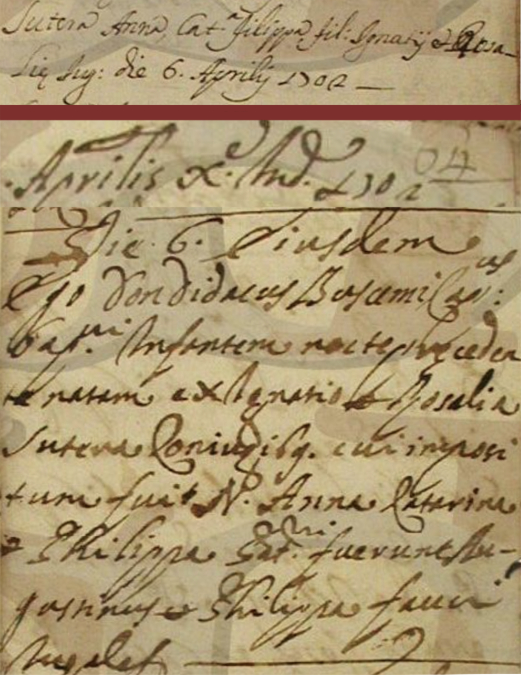 Sutera Anna, Cat.a Filippa fil: Ignatij et Rosa-
lię Iug: die 6. Aprilis 1702
04
Aprilis X. Ind. 1702
Die 6. Eiusdem
Ego Don Didacus Buscemi Cap:us
Bap.vi Infantem nocte pręceden
te natam ex Ignatio et Rosalia
Sutera Coniugibq. cui imposi
tum fuit N. Anna Catarina
e Philippa Pat:ni fuerunt Au-
gustinus e Philippa fauci
Iugales